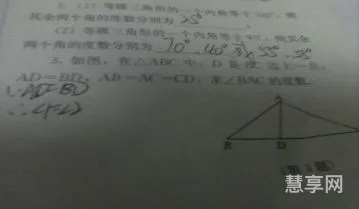 2.(1)等腰三角形的一个内角等于130°,则
其余两个角的度数分别为 25°
(2)等腰三角形的一个内角等于 则其余
两个角的度数分别为 70° 40°或55° 55°
3.如图,在△ABC中,D是 边上一点,
AD=BD,AB=AC=CD,求∠BAC的度数.
∵AD=BD
∴∠1=∠2
A
B
D
(第3题)
慧享网